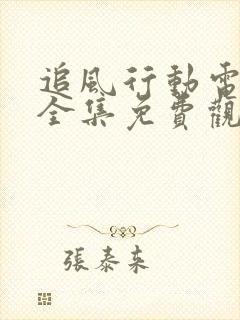 追風行動電
全集免費觀
張泰来